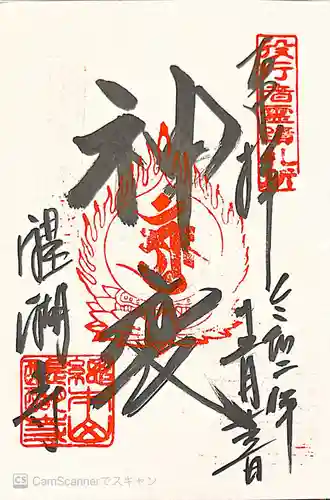 役行者霊蹟札所
奉拝
令和二年
十二月
神変
醍醐寺
CS CamScannerでスキャン